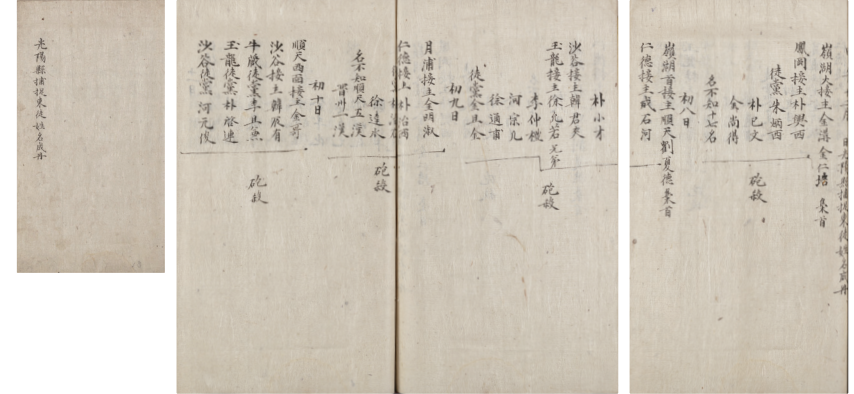 光陽縣捕捉東徒姓名成冊
日光陽縣捕捉東徒姓名成冊
嶺湖大接主金溝金仁培 梟首
鳳岡接主朴興西
徒黨朱炳西
朴已文
砲殺
金尚得
名不知十七名
初八日
嶺湖首接主順天劉夏德梟首
仁德接主成石河
朴小才
沙谷接主韓君夾
玉龍接主徐允若兄弟
砲殺
李仲機
河宗凡
徐通甫
徒黨金且全
初九日
月浦接主金明淑
仁德接主朴治西
徐達永
砲殺
名不知順天五漢
晋州一漢
初十日
順天西面接主金哥
沙谷接主韓辰有
砲殺
牛藏徒黨李且兼
玉龍徒黨朴啓連
沙谷徒黨河元俊